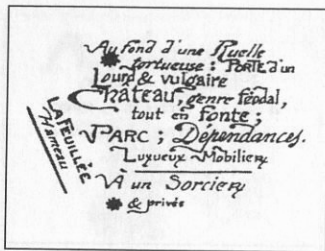 Au fond d'une Ruelle
tortueuse : PORTE d'un
Lourd & vulgaire
Château, genre féodal,
tout en fonte ;
PARC ; Dépendances.
Luxueux Mobilier
À un Sorcier
& privée
LA FEUILLÉE
Hameau